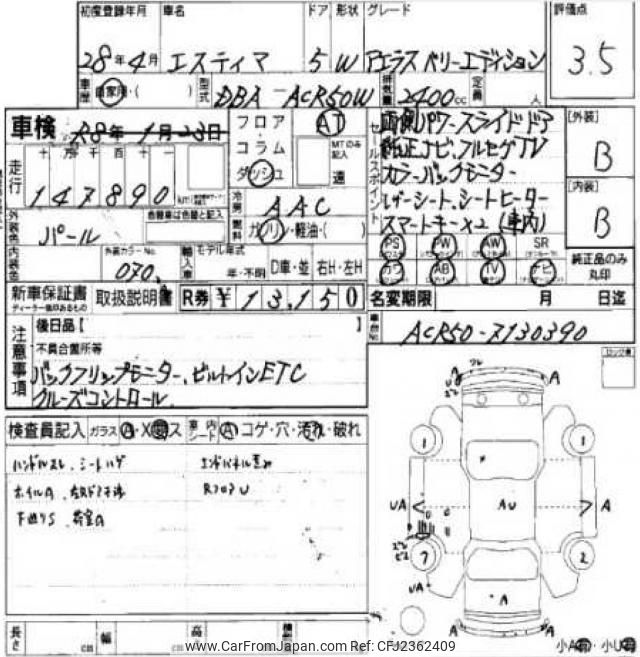 初度登録年月 車名 ドア 形状 グレード 評価点
28年4月 エスティマ 5 W アエラス ベリーエディション 3.5
車歴 自家用・( ) 型式 DBA-ACR50W 排気量 2400cc 定員 人
車検 R8年1月23日 フロア AT
コラム MTのみ記入
ダッシュ 速
走行 十 万 千 百 十 一
147890
セールスポイント
両側パワースライドドア
純正ナビ、フルセグTV
カラーバックモニター
レザーシート、シートヒーター
スマートキーx2 (車内)
[外装]
B
[内装]
B
冷房 AAC
燃料 ガソリン・軽油・( )
外装色 パール 色替車は色替と記入
内装色 外装カラーNo. 070
輸入車 モデル年式
年・不明 D車・並 右H・左H
PS PW AW SR
カワ AB TV ナビ
純正品のみ丸印
新車保証書 取扱説明書 R券 ¥13,150
ディーラー保証のあるもの
名変期限 月 日迄
車台No. ACR50-7130390
注意事項
後日品 [ ]
不具合箇所等
バックフリップモニター、ビルトインETC
クルーズコントロール
検査員記入 ガラス Ⓐ・X・ス 車内シート Ⓐコゲ・穴・汚れ・破れ
ハンドルスレ、シートハゲ
ホイルA
下廻りS、荷室A
RフロアU
A A
1 1
UA AU A
7 2
UA A
A A
長さ cm 幅 cm 高さ
小A 小U
www.CarFromJapan.com Ref: CFJ2362409